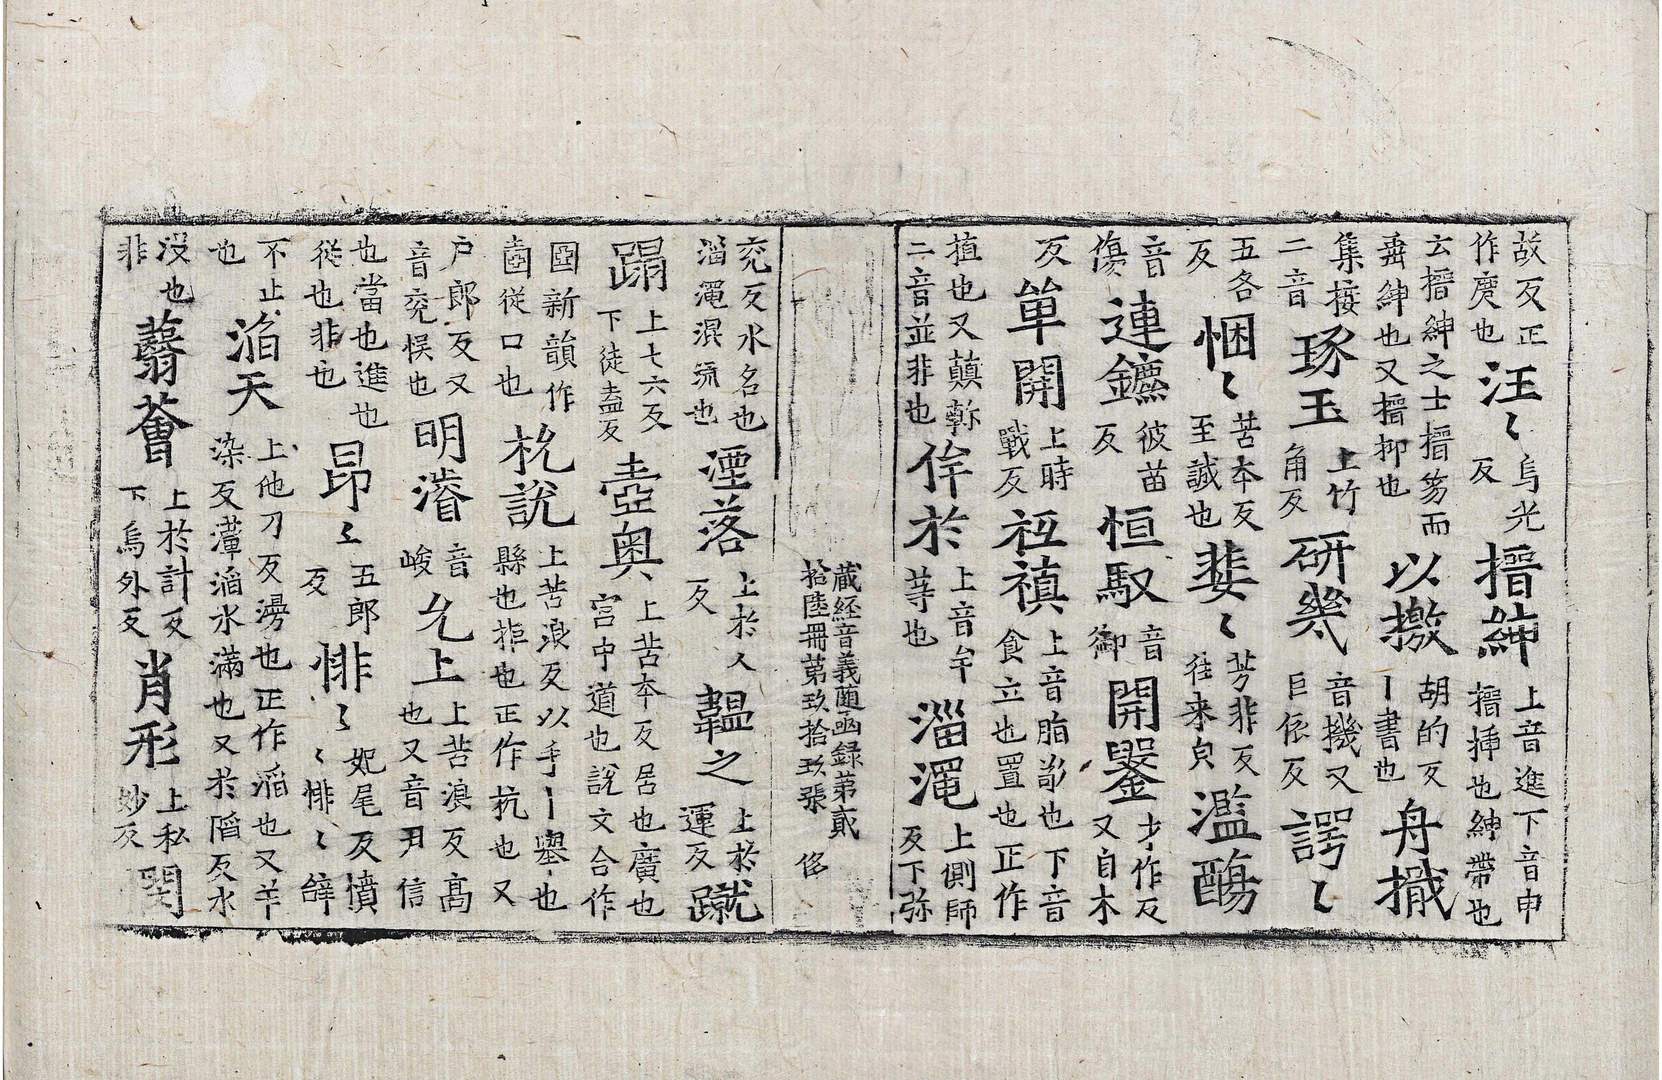 故反正作庹也汪〻烏光反搢紳上音進下音申搢揷也紳帶也
云搢紳之士搢笏而垂紳也又搢抑也以撽胡的反丨書也舟檝
集接二音琢玉上竹角反研幾音機又巨依反諤〻
五各反悃〻苦本反至誠也婓〻芳非反往来皃濫觴
音傷連鑣彼苗反恒馭音御開鑿才作反又自木
反單開上時戰反祗禛上音脂敬也下音食立也置也正作
植也又二音並非也侔於上音牟等也淄澠上側師反下弥
藏経音義随函録第貳
拾陸冊第玖拾玖張 侈
兖反水名也淄澠流也湮落上於人反韞之上於運反蹴
蹋上七六反下徒盍反壼奥上苦本反居也廣也宮中道也說文合作
新韻作従口也說上苦浪反以手丨舉也縣也拒也正作抗也又
户郎反又音兖悮也明濬音峻允上上苦浪反高也又音尹信
也當也進也従也非也昂〻五郎反悱〻妃尾反憤〻悱〻
不止也滔天上他刀反漫也正作滔也又羊染反滔水滿也又於陷反水
没也非蘙薈上於計反下烏外反肖形上私妙反